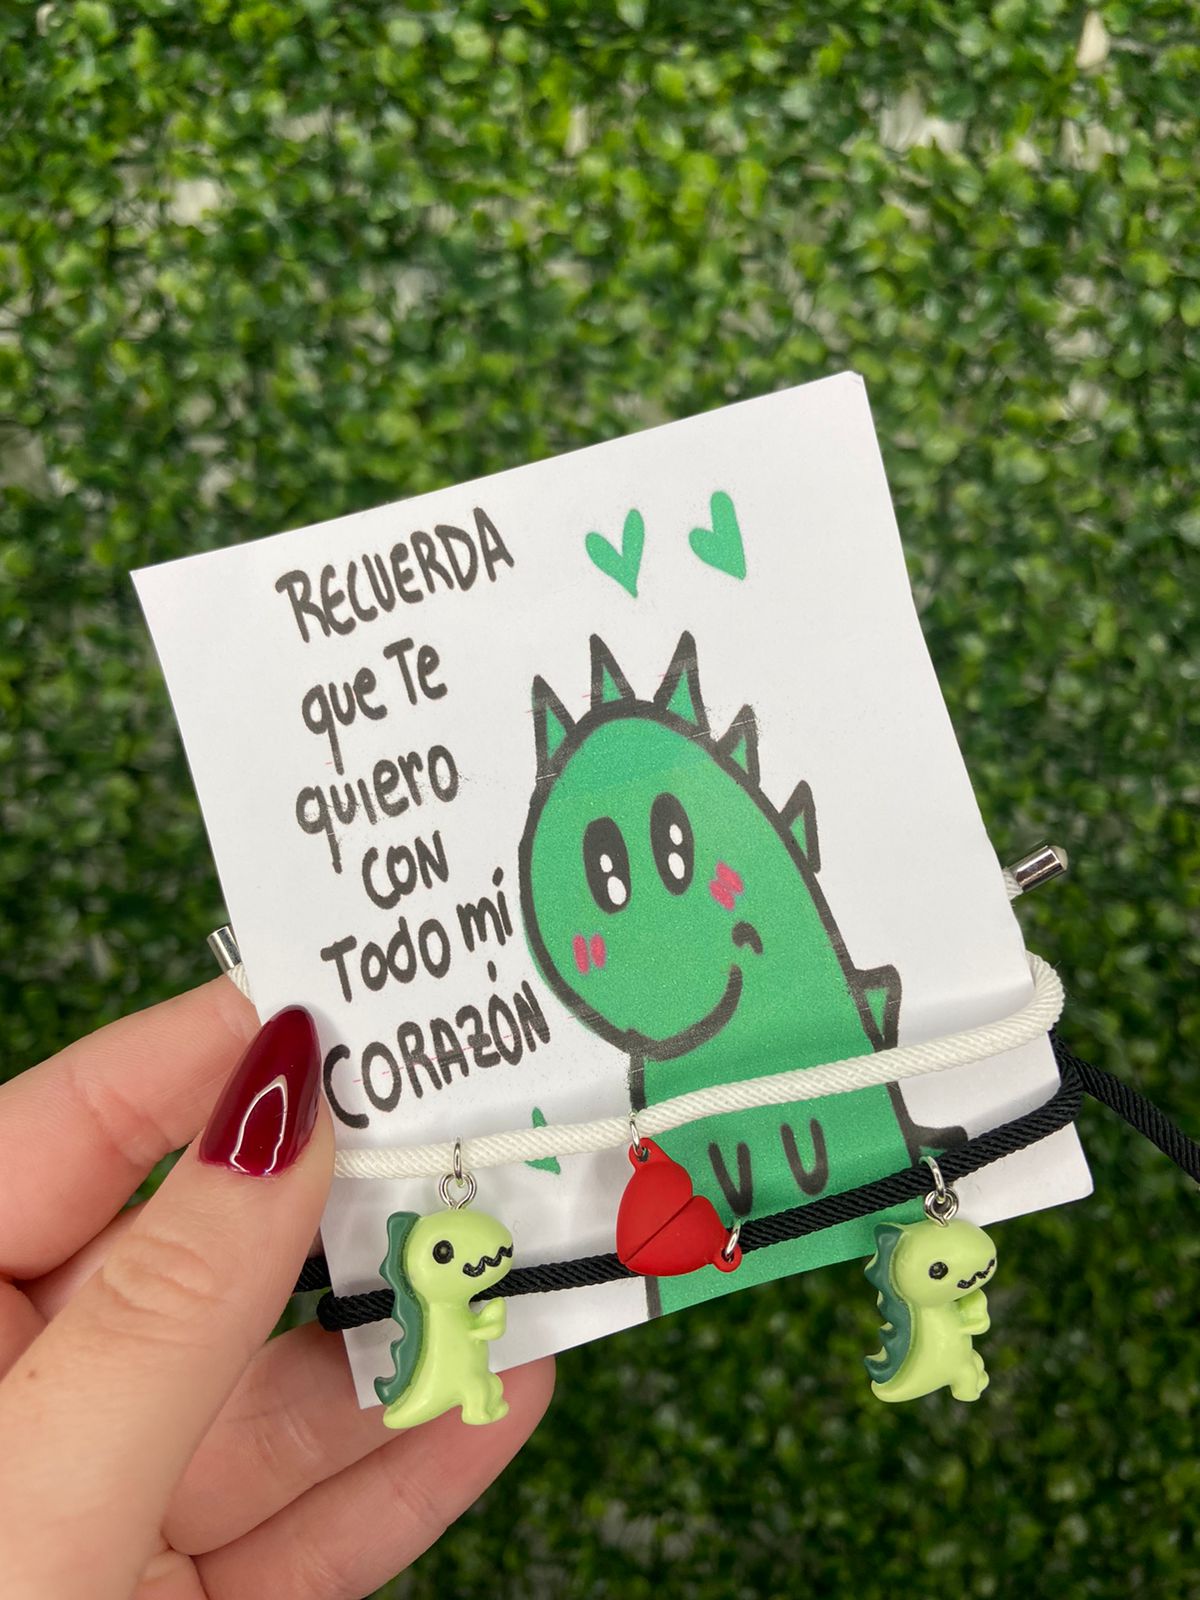 RECUERDA
que Te
quiero
CON
Todo mi
CORAZÓN